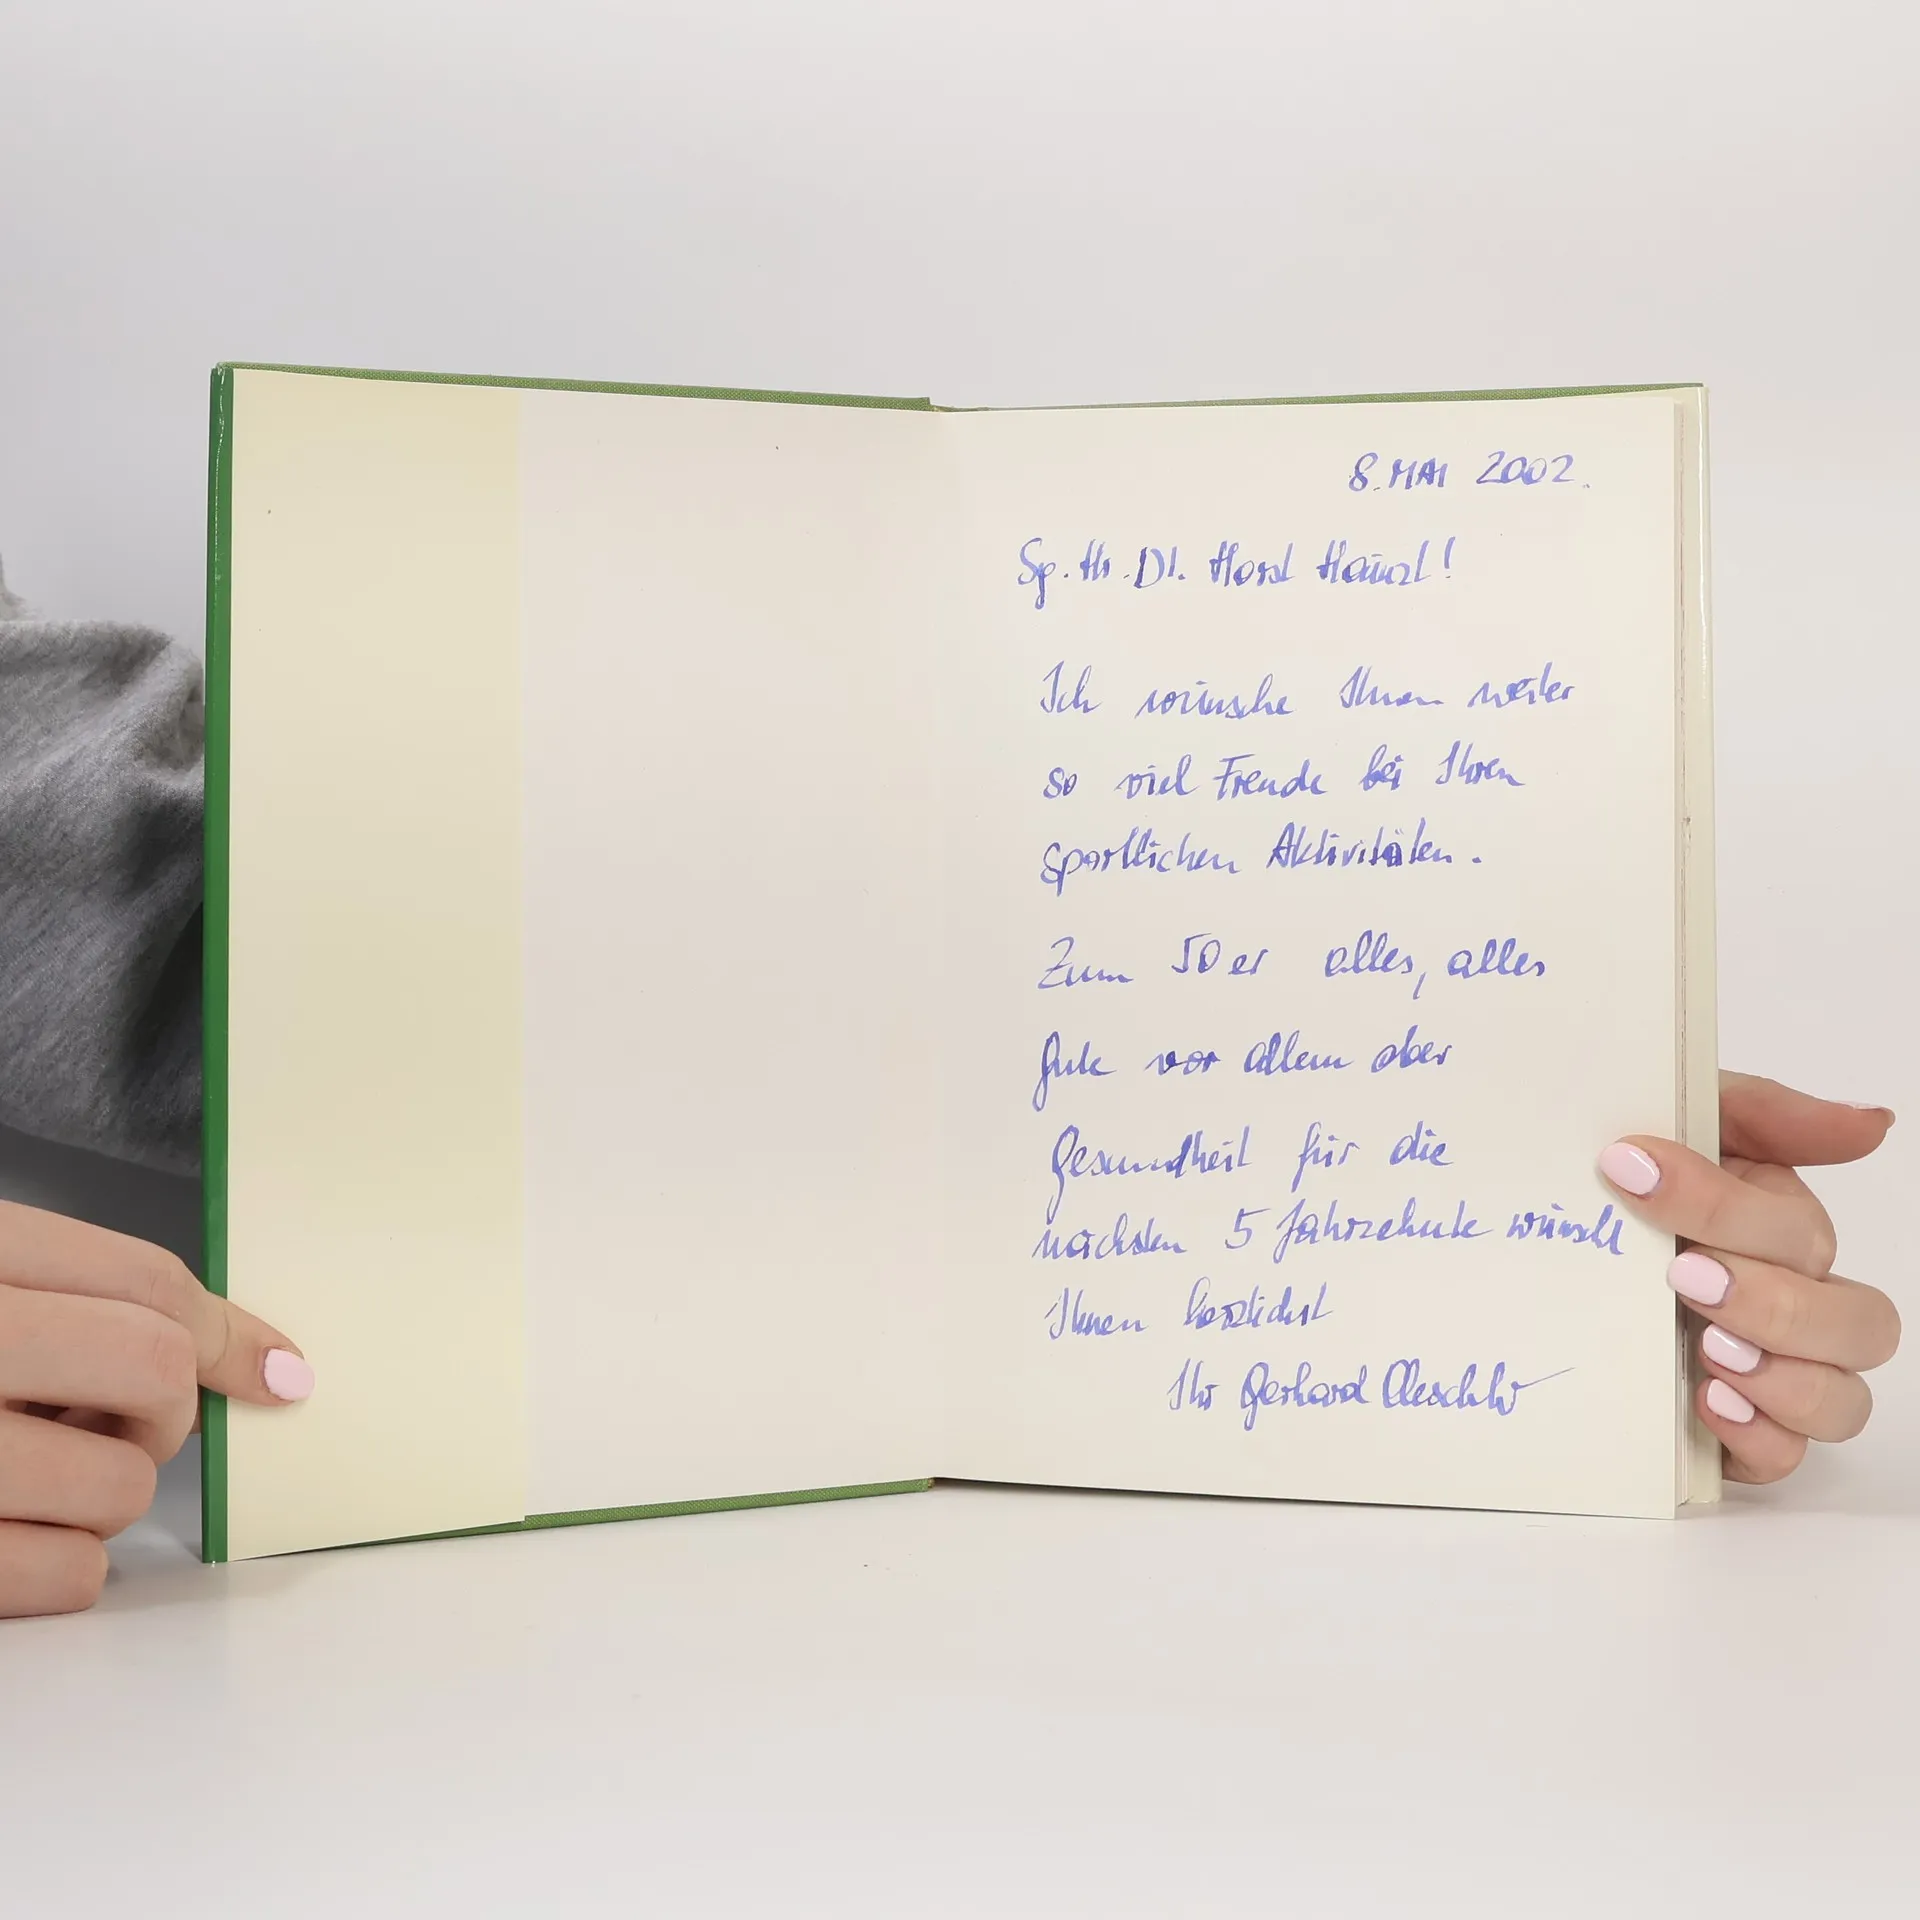 8. MAI 2002.
Sp. Hr. DI. Horst
Ich wünsche Ihnen weiter
so viel Freude bei Ihren
sportlichen Aktivitäten.
Zum 50er alles, alles
Gute vor allem aber
Gesundheit für die
nächsten 5 Jahrzehnte wünscht
Ihnen herzlichst
Ihr Gerhard